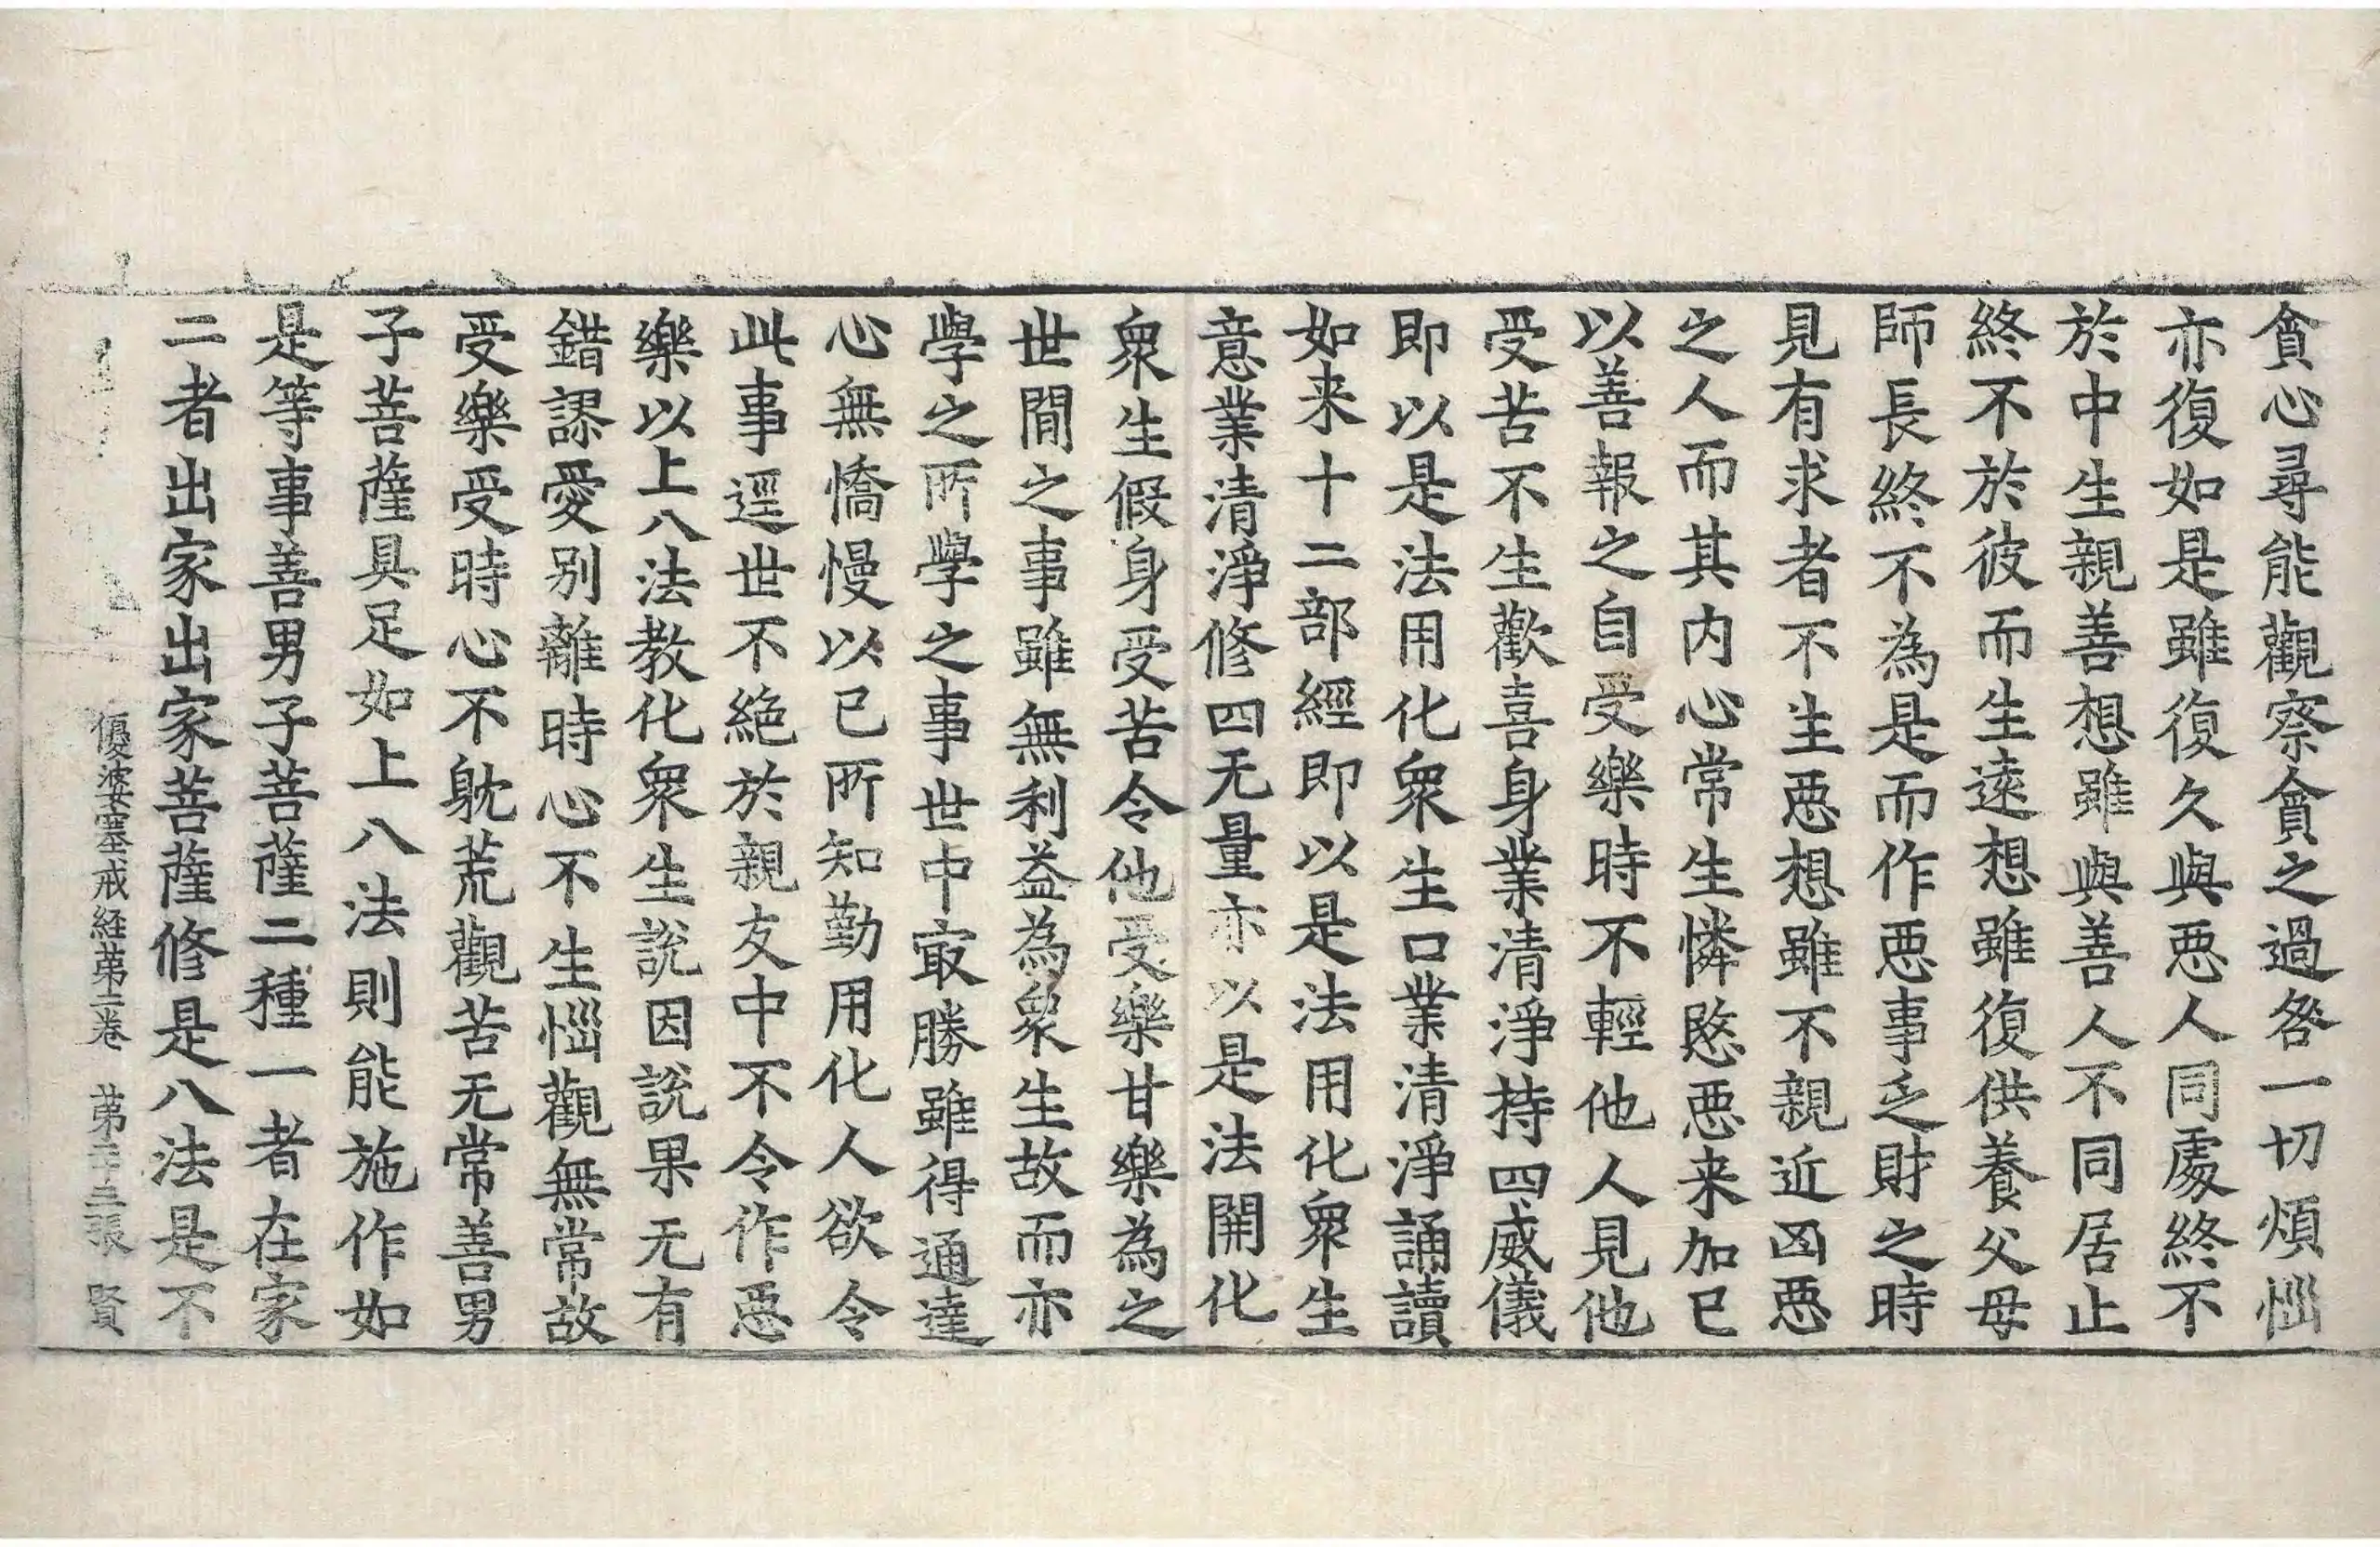 貪心尋能觀察貪之過咎一切煩惱
亦復如是雖復久與惡人同處終不
於中生親善想雖與善人不同居止
終不於彼而生遠想雖復供養父母
師長終不為是而作惡事乏財之時
見有求者不生惡想雖不親近凶惡
之人而其内心常生憐愍惡来加已
以善報之自受樂時不輕他人見他
受苦不生歡喜身業清淨持四威儀
即以是法用化衆生口業清淨誦讀
如来十二部經即以是法用化衆生
意業清淨修四无量亦以是法開化
衆生假身受苦令他受樂甘樂為之
世間之事雖無利益為衆生故而亦
學之所學之事世中㝡勝雖得通達
心無憍慢以已所知勤用化人欲令
此事逕世不絶於親友中不令作惡
樂以上八法教化衆生說因說果无有
錯謬愛别離時心不生惱觀無常故
受樂受時心不躭荒觀苦无常善男
子菩薩具足如上八法則能施作如
是等事善男子菩薩二種一者在家
二者出家出家菩薩修是八法是不
優婆塞戒経苐二卷 苐二十三張 賢